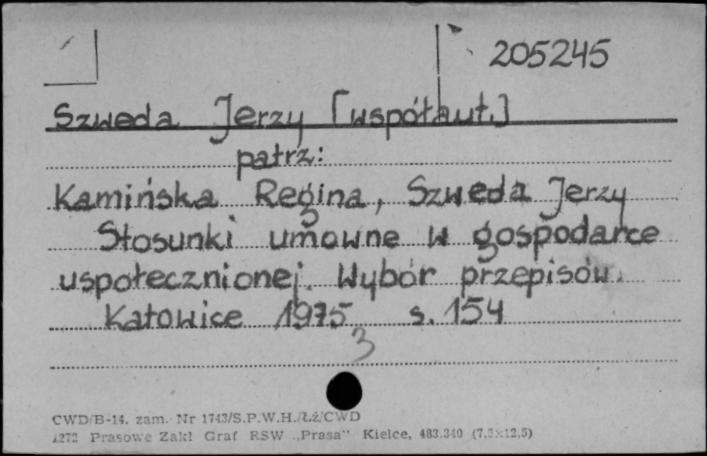 205245
Szweda Jerzy [współaut.]
patrz:
Kamińska Regina, Szweda Jerzy
Stosunki umowne w gospodarce
uspołecznionej. Wybór przepisów.
Katowice 1975 s. 154
3
CWD/B-14. zam. Nr 1743/S.P.W.H./Łż/CWD
1272 Prasowe Zakł Graf RSW „Prasa" Kielce, 483.340 (7,5×12,5)